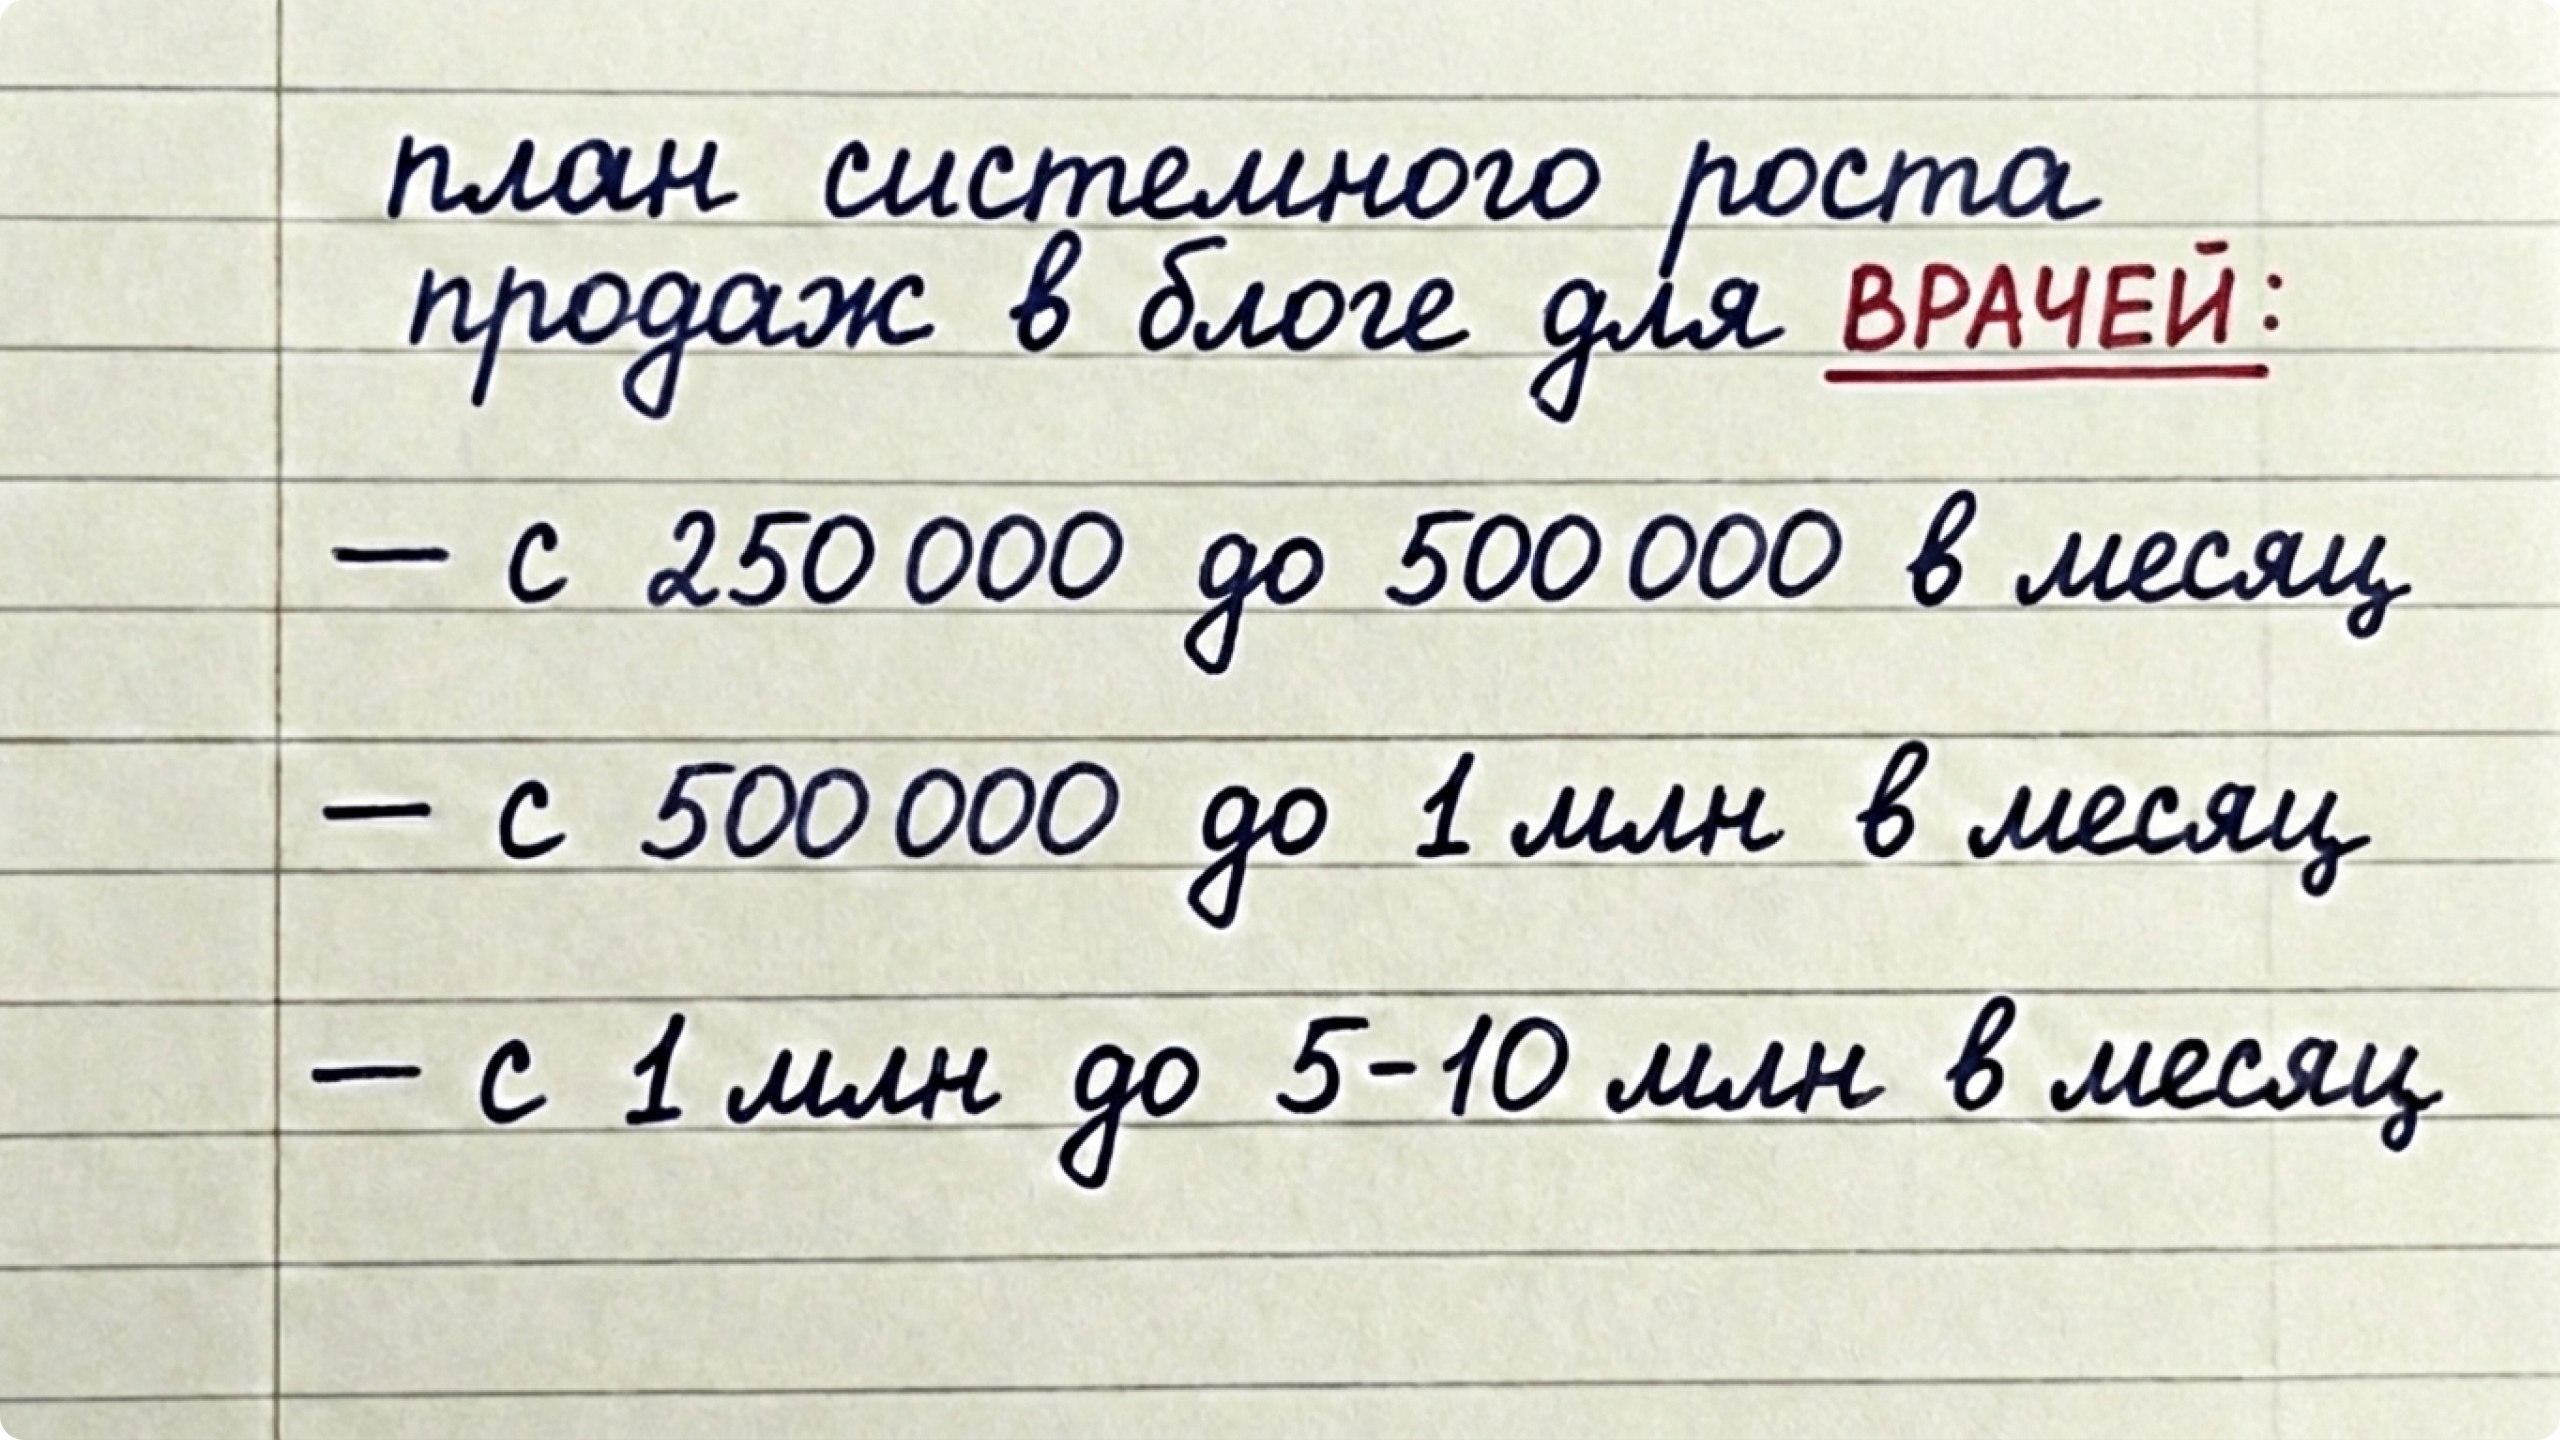 план системного роста
продаж в блоге для ВРАЧЕЙ:
— с 250 000 до 500 000 в месяц
— с 500 000 до 1 млн в месяц
— с 1 млн до 5-10 млн в месяц